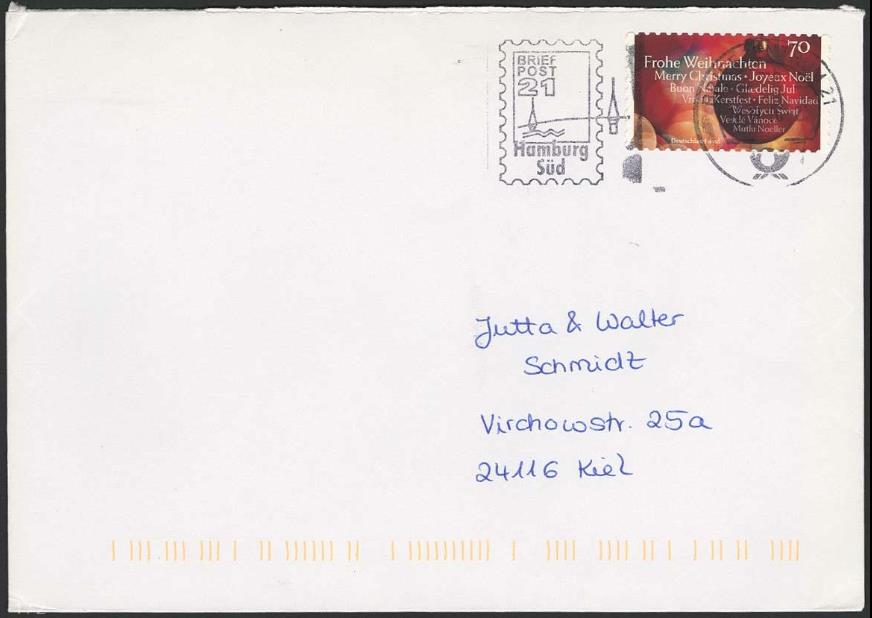 BRIEF
POST
21
Hamburg
Süd
21
70
Frohe Weihnachten
Merry Christmas • Joyeux Noël
Buon Natale • Glædelig Jul
Vrolijk Kerstfest • Feliz Navidad
Wesołych Świąt
Veselé Vánoce
Mutlu Noeller
Deutschland
Jutta & Walter
Schmidt
Virchowstr. 25a
24116 Kiel